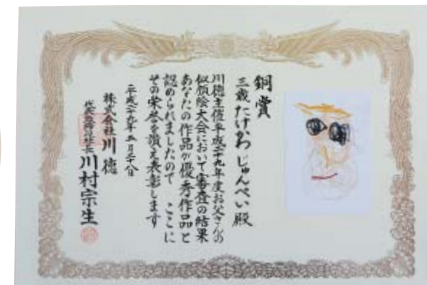 銅賞
三歳 たけかわ じゅんぺい 殿
川徳主催平成二十九年度お父さんの
似顔絵大会において審査の結果
あなたの作品が優秀作品と
認められましたので ここに
その栄誉を讃え表彰します
平成二十九年五月二十八日
株式会社 川徳
代表取締役社長 川村宗生